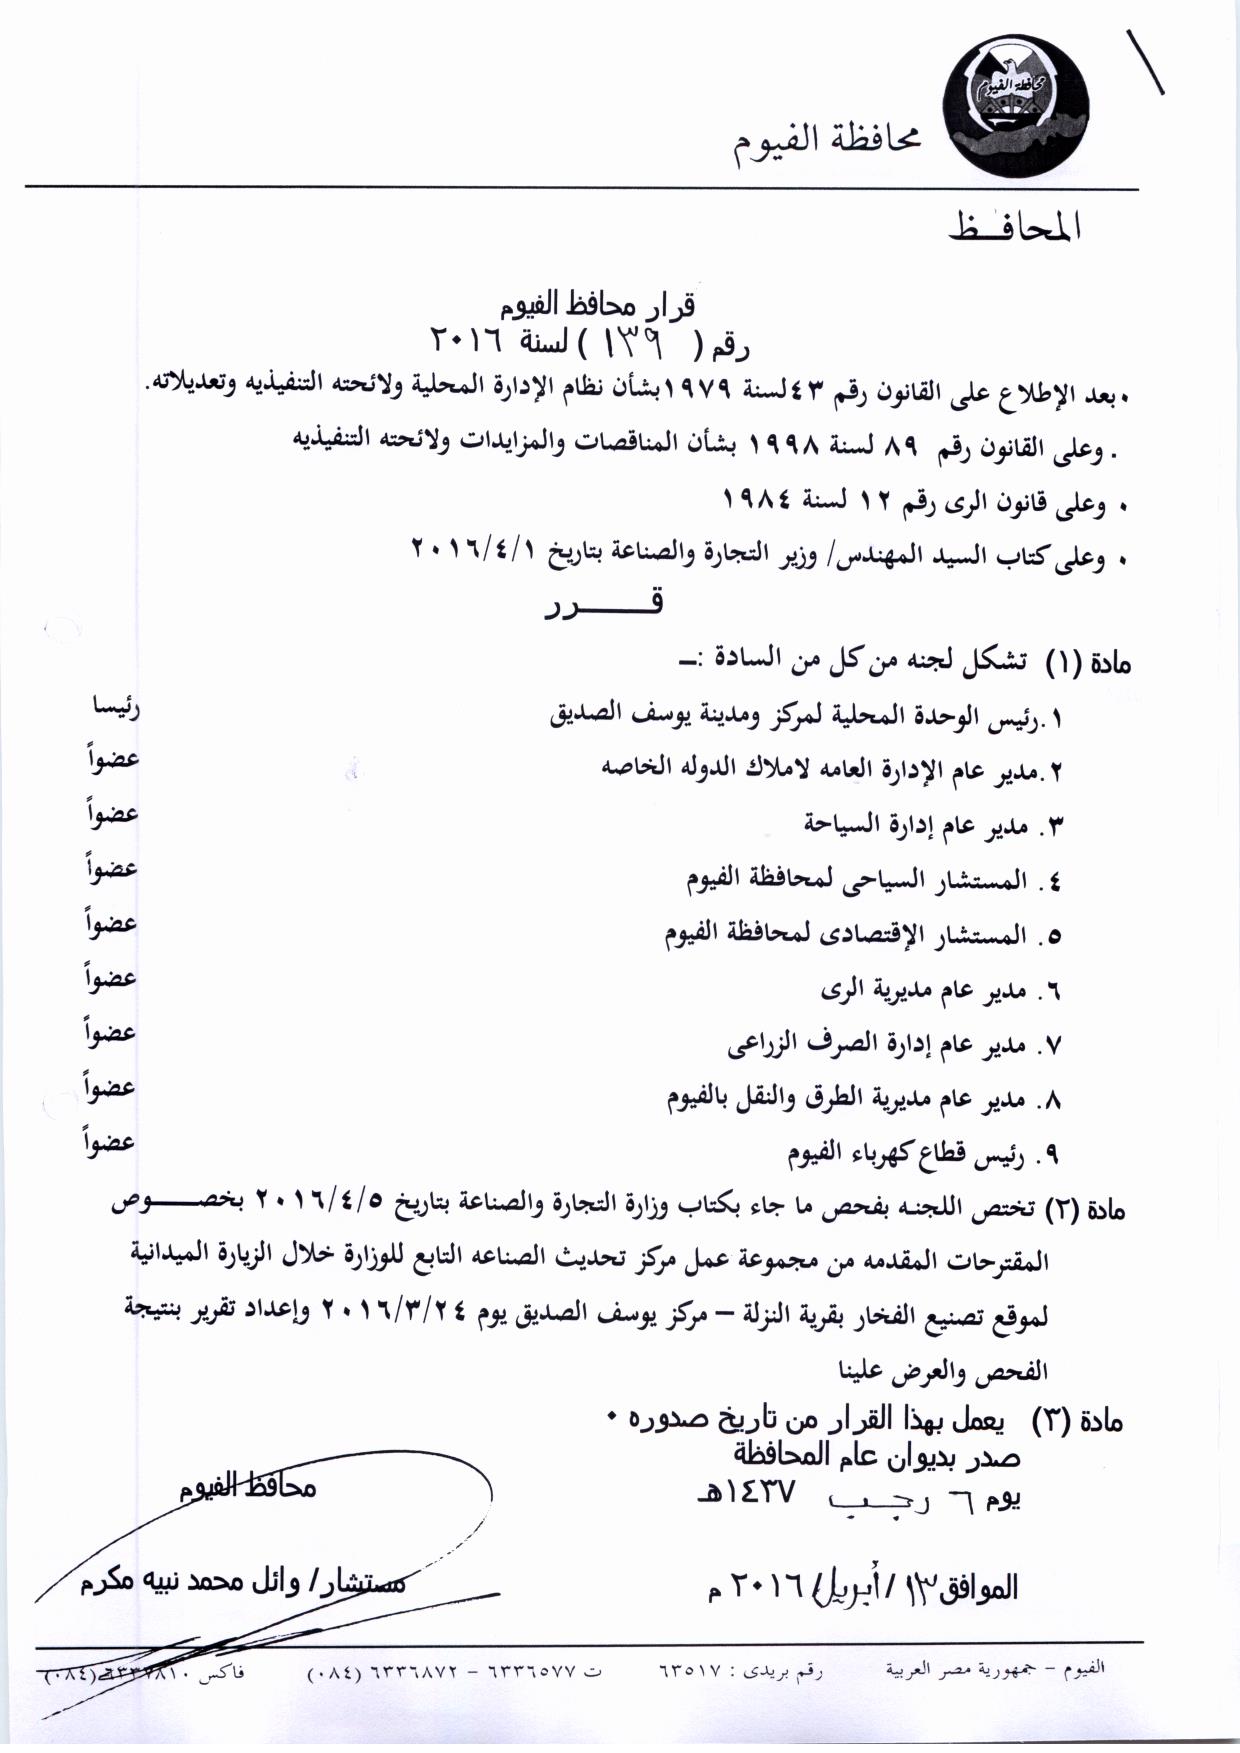 محافظة الفيوم
محافظة الفيوم
المحافـظ
قرار محافظ الفيوم
رقم ( ١٣٩ ) لسنة ٢٠١٦
٠ بعد الإطلاع على القانون رقم ٤٣ لسنة ١٩٧٩ بشأن نظام الإدارة المحلية ولائحته التنفيذيه وتعديلاته.
. وعلى القانون رقم ٨٩ لسنة ١٩٩٨ بشأن المناقصات والمزايدات ولائحته التنفيذيه
٠ وعلى قانون الرى رقم ١٢ لسنة ١٩٨٤
٠ وعلى كتاب السيد المهندس/ وزير التجارة والصناعة بتاريخ ٢٠١٦/٤/١
قـــــرر
مادة (١) تشكل لجنه من كل من السادة :ــ
١.رئيس الوحدة المحلية لمركز ومدينة يوسف الصديق رئيسا
٢.مدير عام الإدارة العامه لاملاك الدوله الخاصه عضواً
٣. مدير عام إدارة السياحة عضواً
٤. المستشار السياحى لمحافظة الفيوم عضواً
٥. المستشار الإقتصادى لمحافظة الفيوم عضواً
٦. مدير عام مديرية الرى عضواً
٧. مدير عام إدارة الصرف الزراعى عضواً
٨. مدير عام مديرية الطرق والنقل بالفيوم عضواً
٩. رئيس قطاع كهرباء الفيوم عضواً
مادة (٢) تختص اللجنه بفحص ما جاء بكتاب وزارة التجارة والصناعة بتاريخ ٢٠١٦/٤/٥ بخصـــــوص
المقترحات المقدمه من مجموعة عمل مركز تحديث الصناعه التابع للوزارة خلال الزيارة الميدانية
لموقع تصنيع الفخار بقرية النزلة – مركز يوسف الصديق يوم ٢٠١٦/٣/٢٤ وإعداد تقرير بنتيجة
الفحص والعرض علينا
مادة (٣) يعمل بهذا القرار من تاريخ صدوره ٠
صدر بديوان عام المحافظة
يوم ٦ رجب ١٤٣٧هـ
محافظ الفيوم
الموافق ١٣ / أبريل / ٢٠١٦ م
مستشار/ وائل محمد نبيه مكرم
الفيوم - جمهورية مصر العربية رقم بريدى : ٦٣٥١٧ ت ٦٣٣٦٥٧٧ – ٦٣٣٦٨٧٢ (٠٨٤) فاكس (٠٨٤)